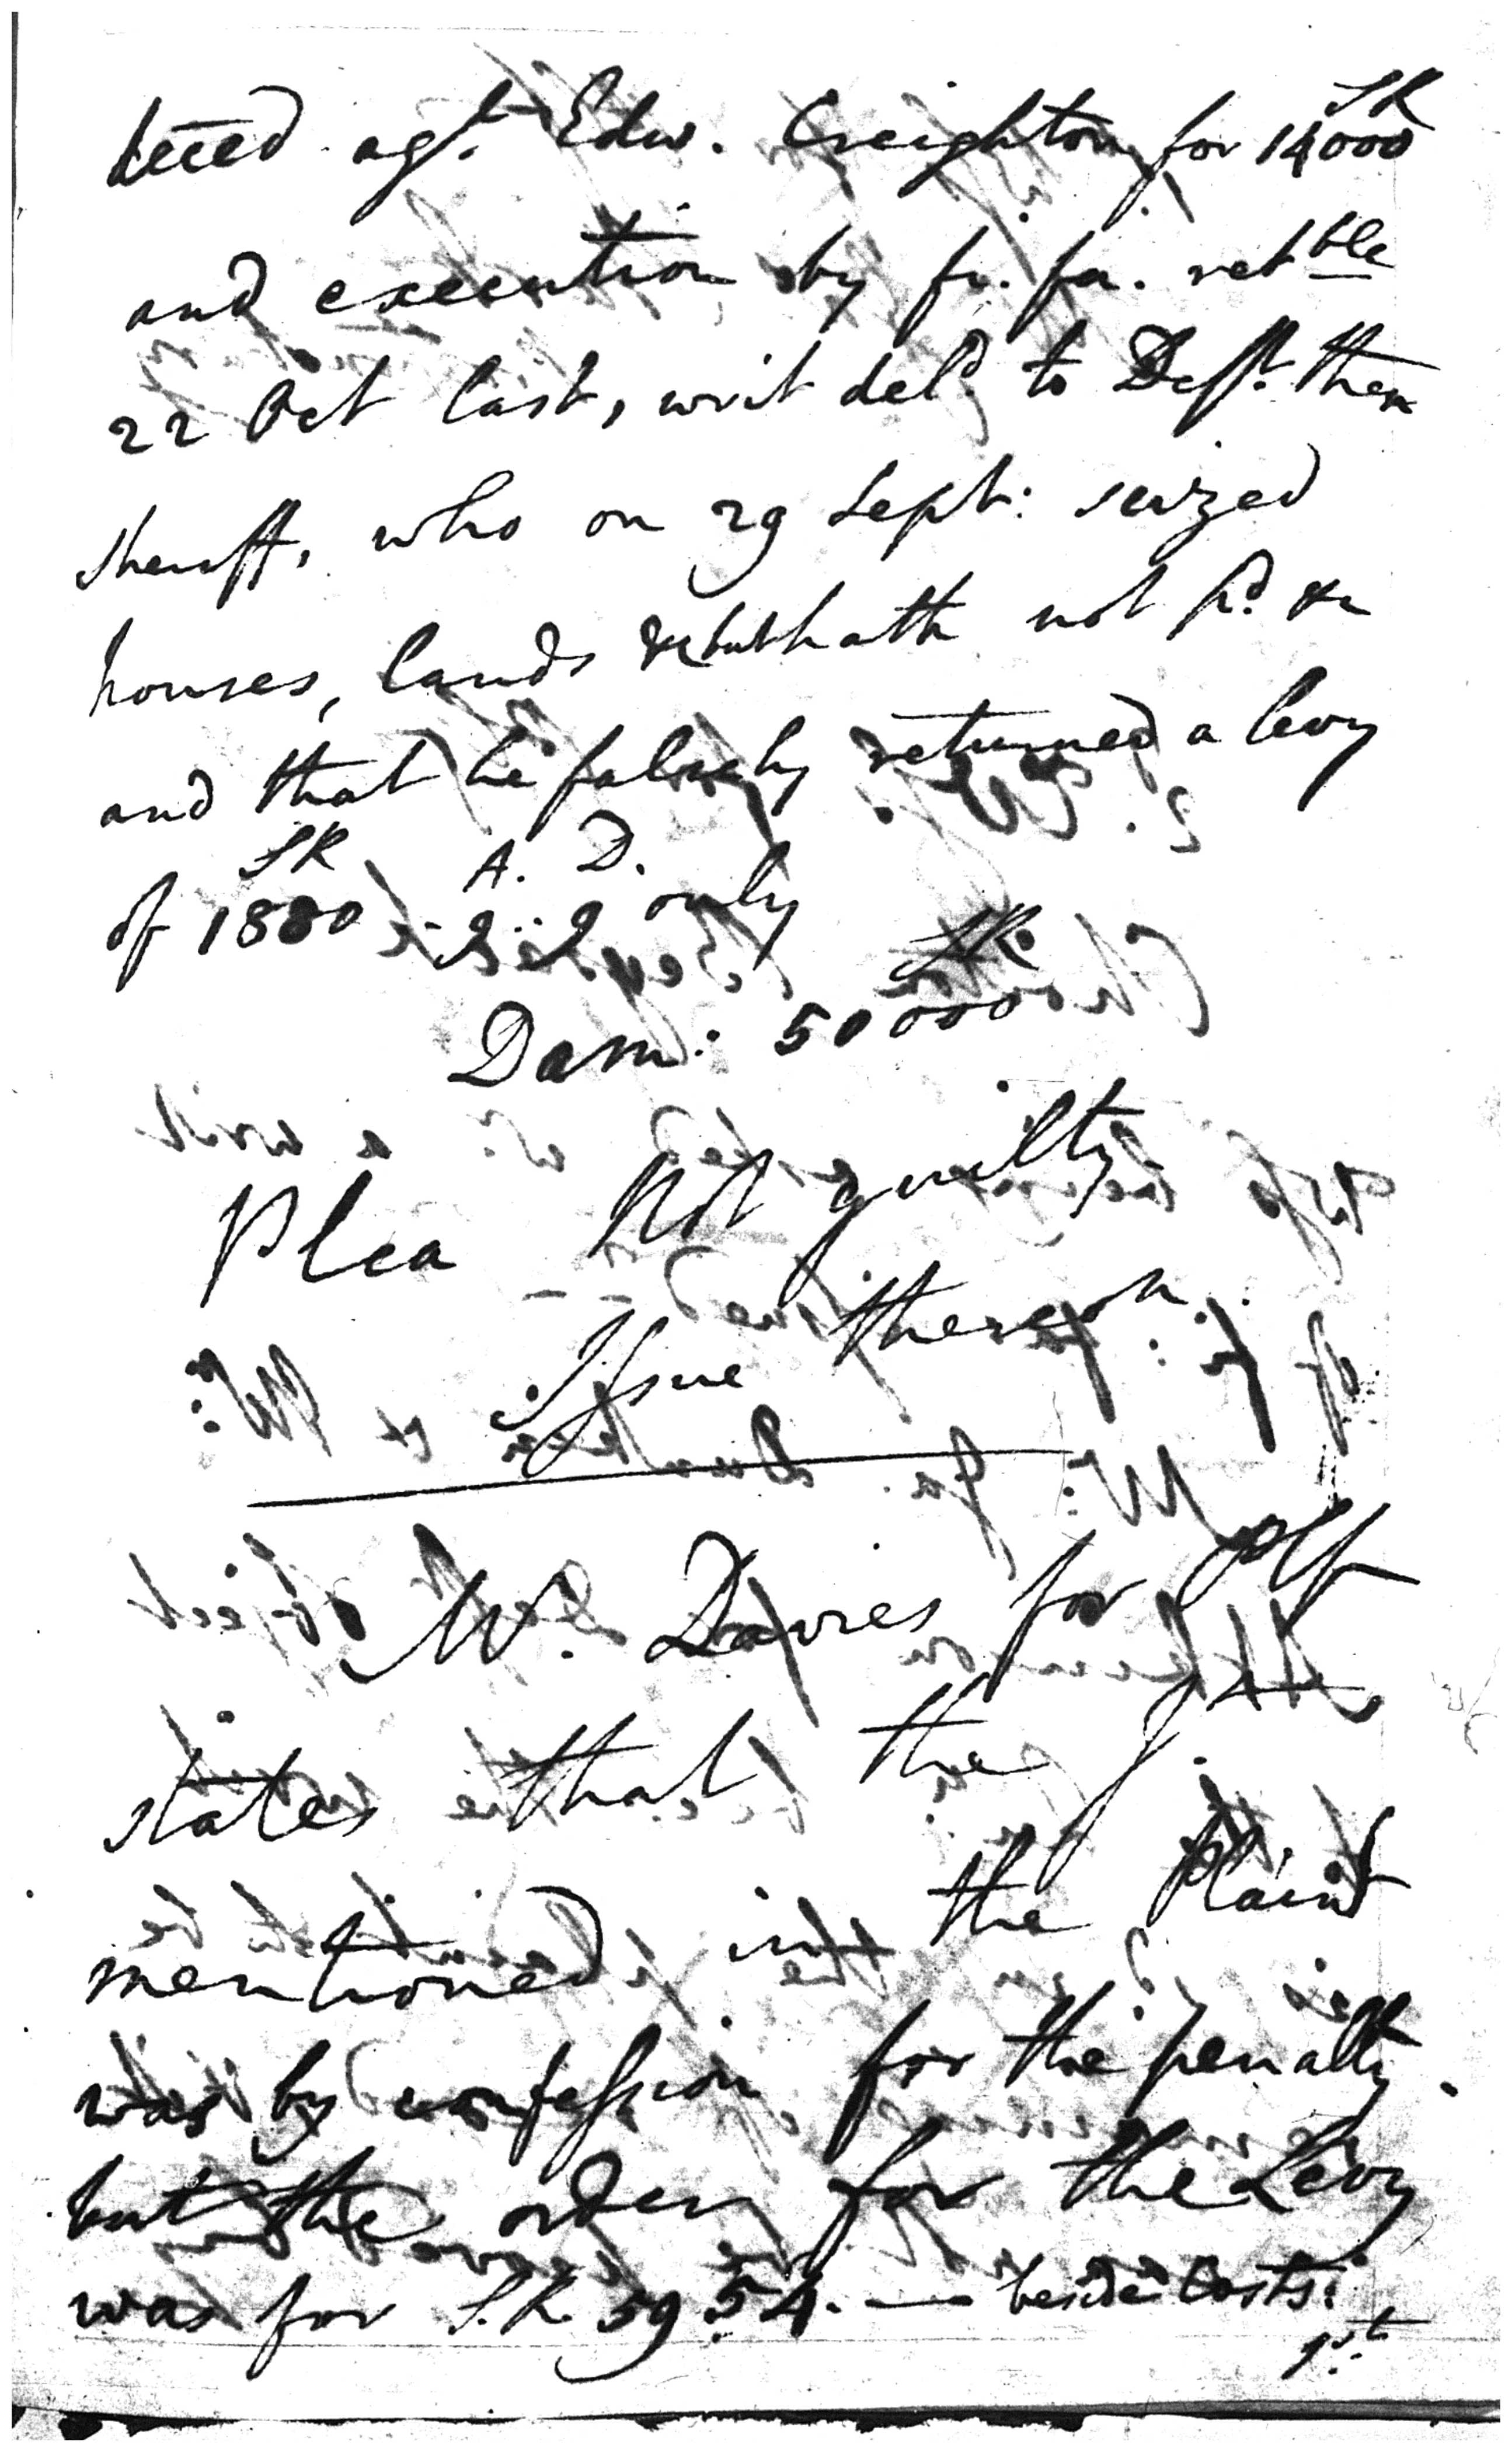 agt. Edw. Creighton for 14000 SR
and execution by fi. fa. retble
22 Oct last, writ deld. to Deft. then
sheriff, who on 29 Sept: seized
houses, lands &c but hath not pd. &c
and that he falsely returned a levy
of 1880 SR A. D. 2..2 only
Dam: 50000 SR.
Plea Not guilty
Issue thereon.
Mr. Davies for Plf
states that the J.
mentioned in the Plaint
was by confession for the penalty.
but the order for the Levy
was for S.R. 5954. — besides Costs:
1st